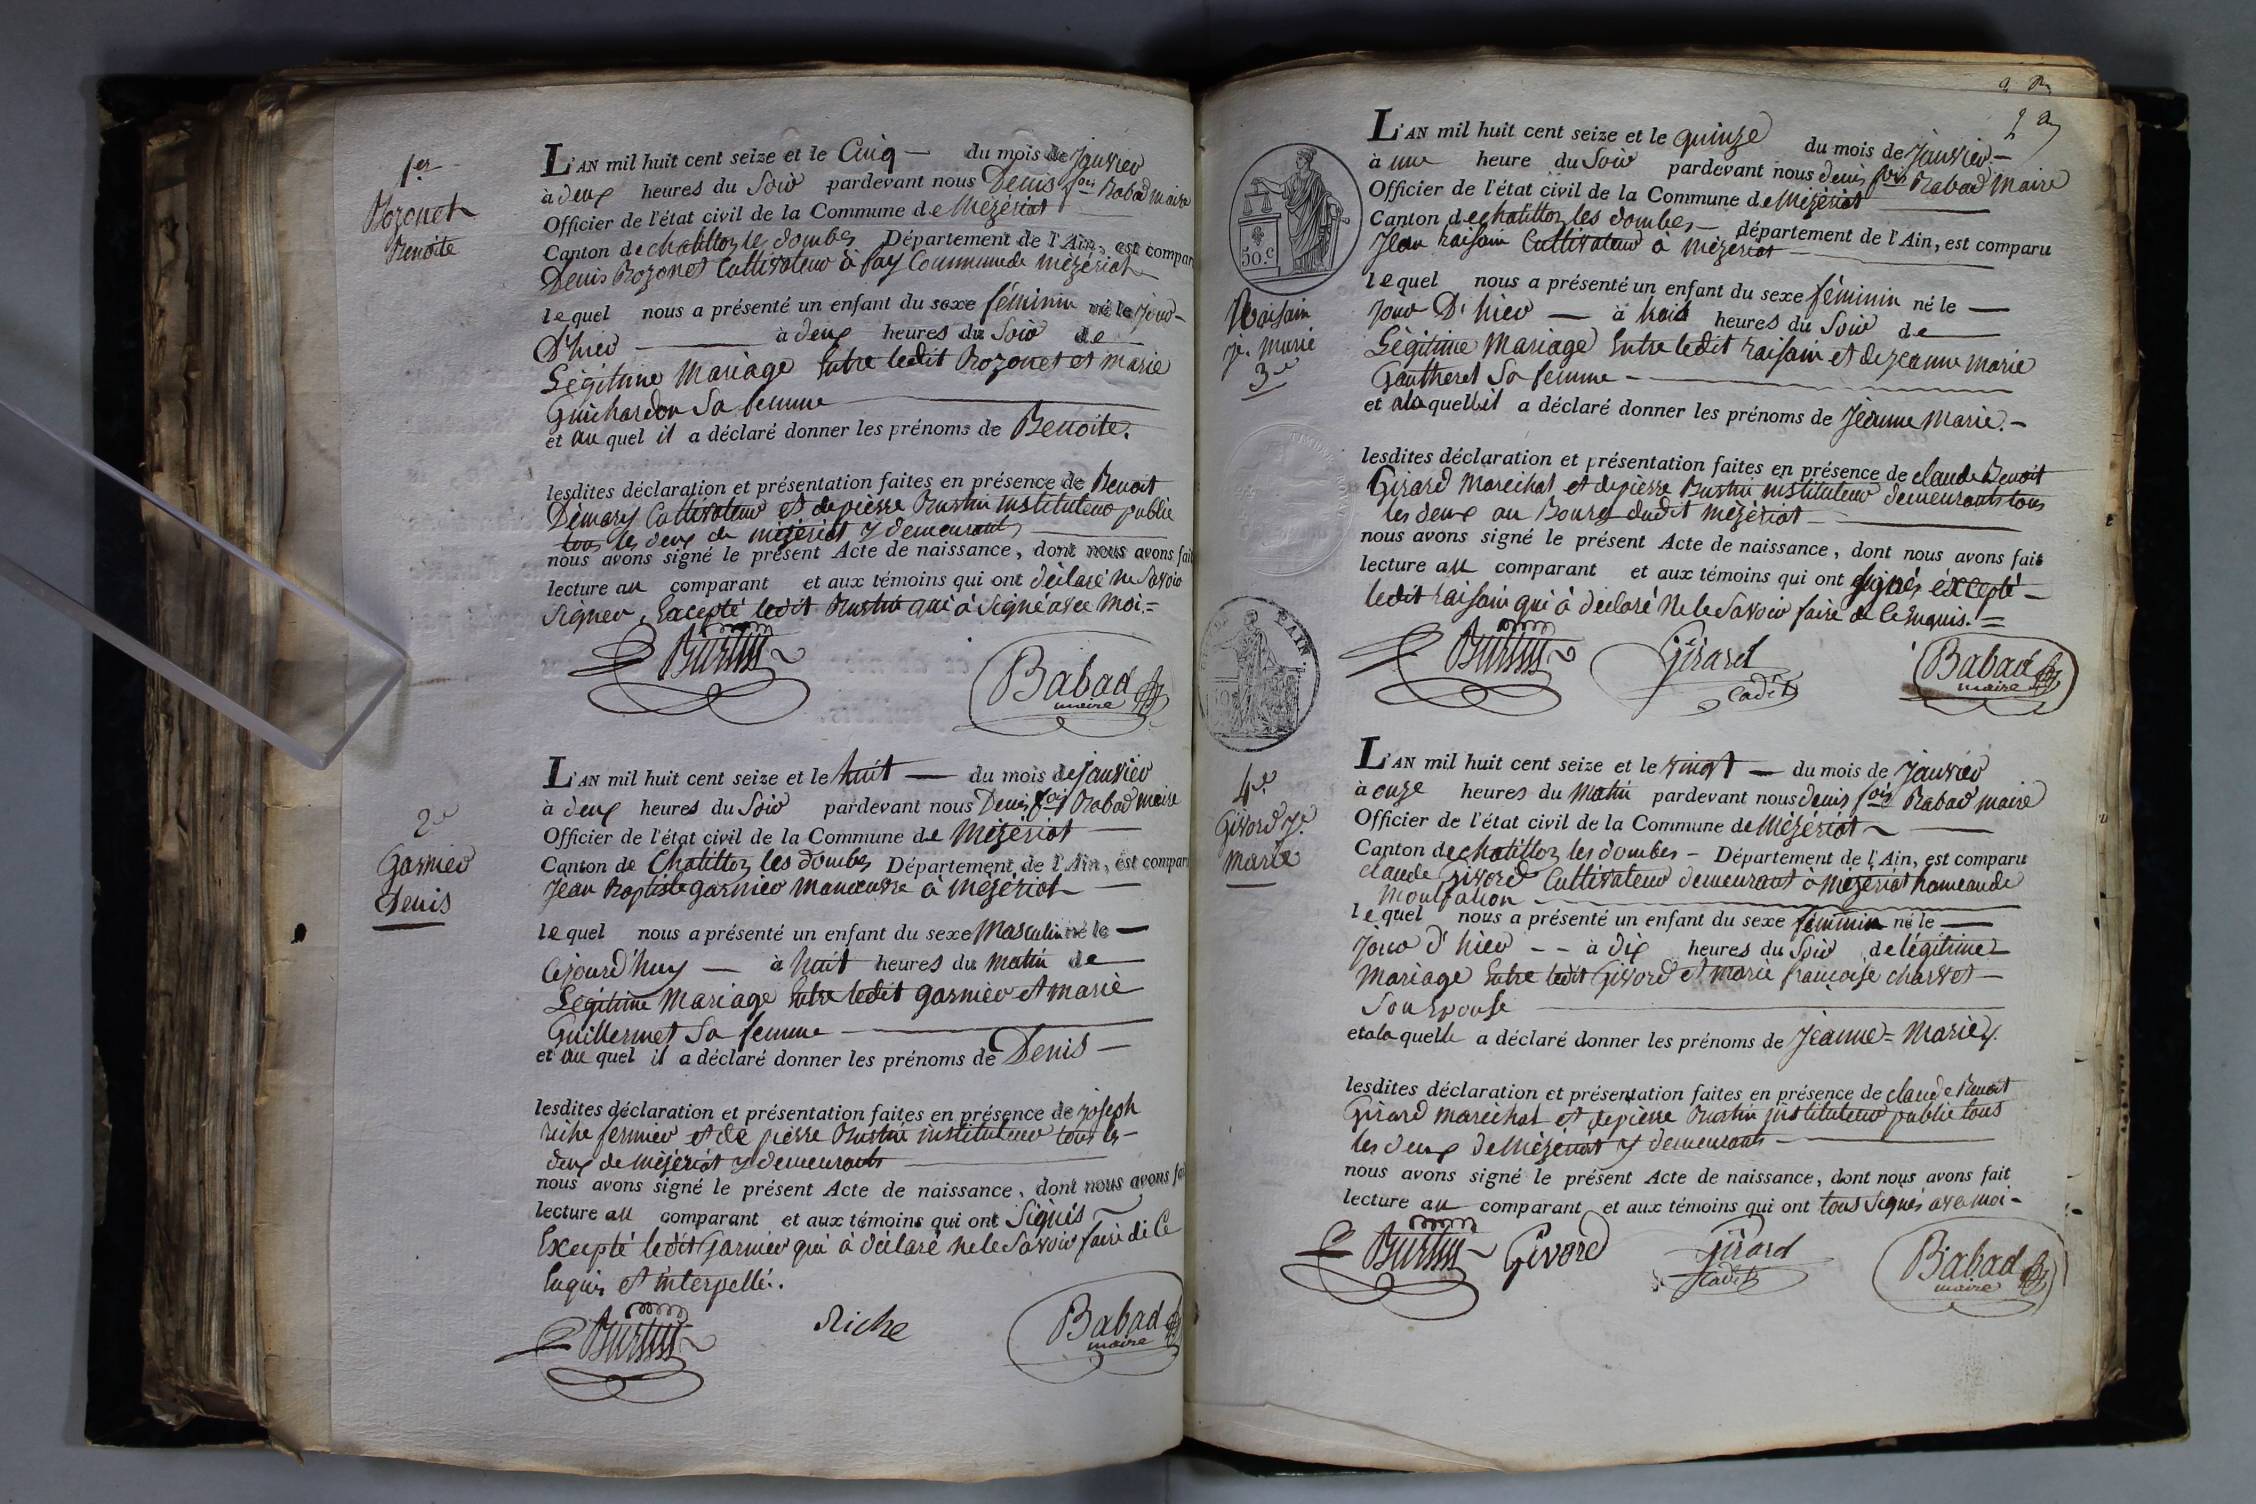 1er
Bozonet
Benoite
L'AN mil huit cent seize et le Cinq — du mois de Janvier
à deux heures du Soir pardevant nous Denis fois Babad maire
Officier de l'état civil de la Commune de Mézériat
Canton de chatillon les dombes Département de l'Ain, est compar
Denis Bozonet Cultivateur à fay Commune de mézériat
lequel nous a présenté un enfant du sexe féminin né le Jour
D'hier — à deux heures du Soir de —
Légitime Mariage Entre ledit Bozonet et marie
Guichardon Sa femme
et au quel il a déclaré donner les prénoms de Benoite.
lesdites déclaration et présentation faites en présence de Benoit
Démary Cultivateur et de pierre Burtin instituteur public
tous les deux de mézériat y demeurant
nous avons signé le présent Acte de naissance, dont nous avons fait
lecture au comparant et aux témoins qui ont déclaré ne Savoir
Signer, Excepté ledit Burtin qui à Signé avec Moi.=
Burtin
Babad
maire
2e
Garnier
Denis
L'AN mil huit cent seize et le huit — du mois de Janvier
à deux heures du Soir pardevant nous Denis fois Babad maire
Officier de l'état civil de la Commune de Mézériat —
Canton de Chatillon les dombes Département de l'Ain, est compar
Jean Baptiste garnier manoeuvre à Mézériat —
lequel nous a présenté un enfant du sexe Masculin né le —
Cejourd'huy — à huit heures du matin de —
Légitime Mariage Entre ledit garnier et marie
Guillermet Sa femme —
et au quel il a déclaré donner les prénoms de Denis —
lesdites déclaration et présentation faites en présence de joseph
riche fermier et de pierre Burtin instituteur tous les
deux de Mézériat y demeurants
nous avons signé le présent Acte de naissance, dont nous avons fai
lecture au comparant et aux témoins qui ont Signés
Excepté ledit Garnier qui à déclaré ne le Savoir faire de Ce
Enquis et interpellé.
Burtin
Riche
Babad
maire
2
L'AN mil huit cent seize et le quinze du mois de Janvier —
à une heure du Soir pardevant nous denis fois Babad Maire
Officier de l'état civil de la Commune de Mézériat
Canton de chatillon les dombes — département de l'Ain, est comparu
Jean raisain Cultivateur à Mézériat —
50.c
Raisain
Je. Marie
3e
lequel nous a présenté un enfant du sexe féminin né le —
Jour D'hier — à huit heures du Soir de
Légitime Mariage Entre ledit raisain et de jeanne marie
Gautheret Sa femme —
et a la quelle il a déclaré donner les prénoms de Jeanne Marie. —
lesdites déclaration et présentation faites en présence de claude Benoit
Girard Marechal et de pierre Burtin instituteur demeurants tous
les deux au Bourg dudit Mézériat —
nous avons signé le présent Acte de naissance, dont nous avons fait
lecture au comparant et aux témoins qui ont signés éxcepté —
ledit raisain qui à déclaré ne le Savoir faire de Ce Enquis. =
Burtin
Girard
Cadet
Babad
maire
4e
Givord Je.
Marie
L'AN mil huit cent seize et le vingt — du mois de Janvier
à onze heures du Matin pardevant nous denis fois Babad maire
Officier de l'état civil de la Commune de Mézériat
Canton de chatillon les dombes — Département de l'Ain, est comparu
claude Givord Cultivateur demeurant à Mézériat hameau de
Montfalcon
lequel nous a présenté un enfant du sexe féminin né le —
Jour d'hier — à dix heures du Soir de légitime
Mariage Entre ledit Givord et marie françoise charvet —
Son Epouse
et a la quelle a déclaré donner les prénoms de Jeanne = Marie.
lesdites déclaration et présentation faites en présence de claude Benoit
Girard marechal et de pierre Burtin instituteur public tous
les deux de Mézériat y demeurants —
nous avons signé le présent Acte de naissance, dont nous avons fait
lecture au comparant et aux témoins qui ont tous Signés avec moi —
Burtin
Givord
Girard
Cadet
Babad
maire